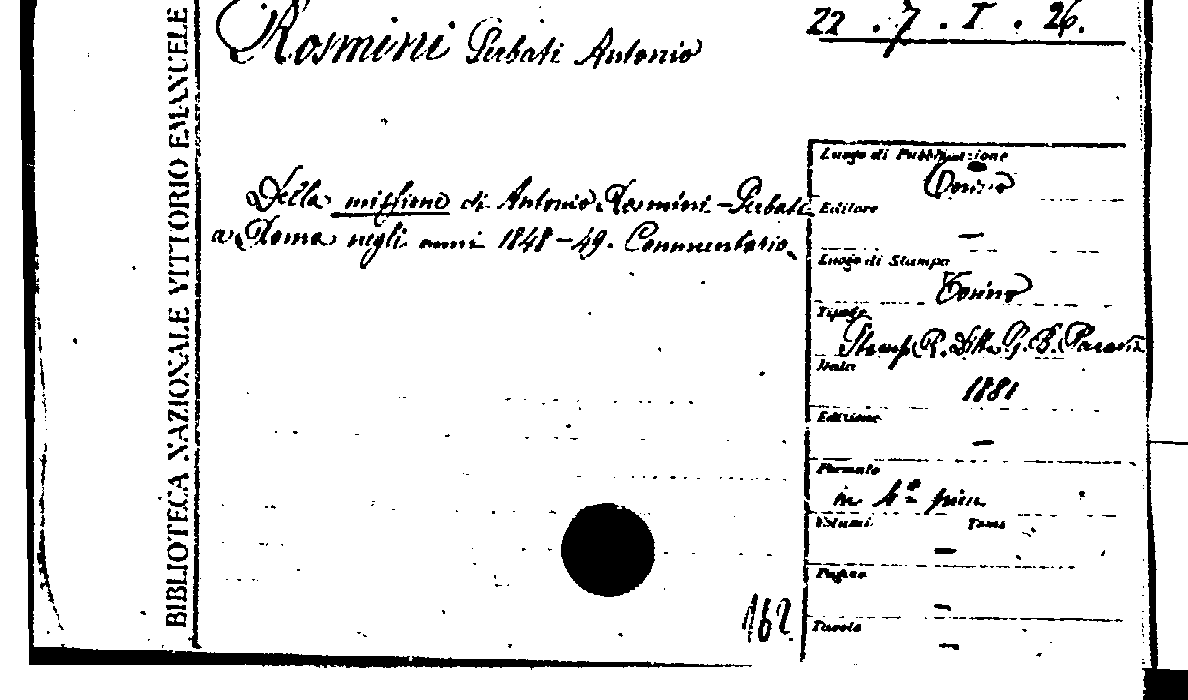 BIBLIOTECA NAZIONALE VITTORIO EMANUELE
22 . 7 . I . 26.
Rosmini Serbati Antonio
Della missione di Antonio Rosmini-Serbati
a Roma negli anni 1848-49. Commentario.
Luogo di Pubblicazione
Torino
Editore
—
Luogo di Stampa
Torino
Tipogr.
Stamp. R. Ditta G. B. Paravia
Data
1881
Edizione
—
Formato
in 4º picc.
Volumi Tomi
—
Pagine
—
Tavole
—
162